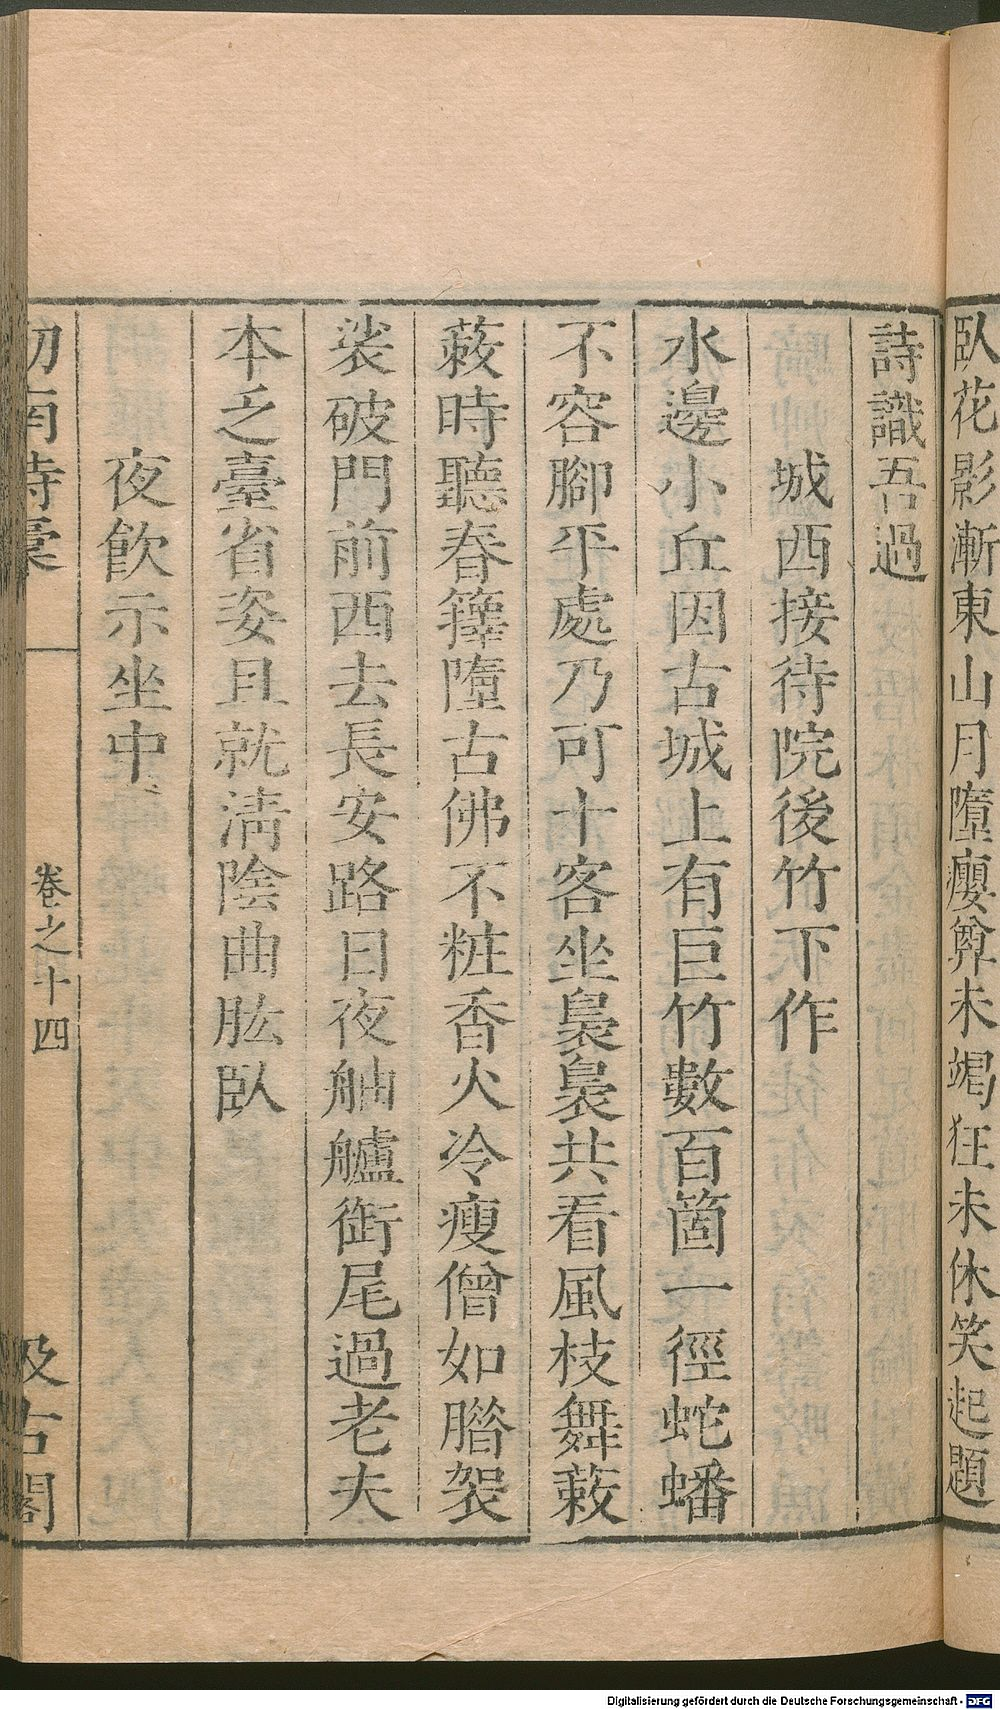 臥花影漸東山月墮癭尊未竭狂未休笑起題
詩識吾過
城西接待院後竹下作
水邊小丘因古城上有巨竹數百箇一徑蛇蟠
不容腳平處乃可十客坐裊裊共看風枝舞蔌
蔌時聽春籜墮古佛不粧香火冷瘦僧如腊袈
裟破門前西去長安路日夜舳艫銜尾過老夫
本乏臺省姿且就清陰曲肱臥
夜飲示坐中
劒南詩稾
卷之十四
汲古閣
Digitalisierung gefördert durch die Deutsche Forschungsgemeinschaft - DFG